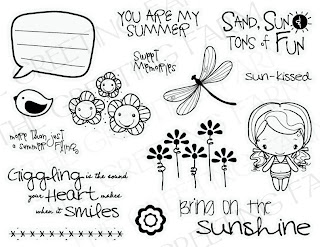 YOU ARE MY
SUMMER
SAND, SUN
TONS of FUN
Sweet
Memories
sun-kissed
more than just
a summer Fling
Giggling is the sound
your Heart makes
when it Smiles
Bring on the
sunshine